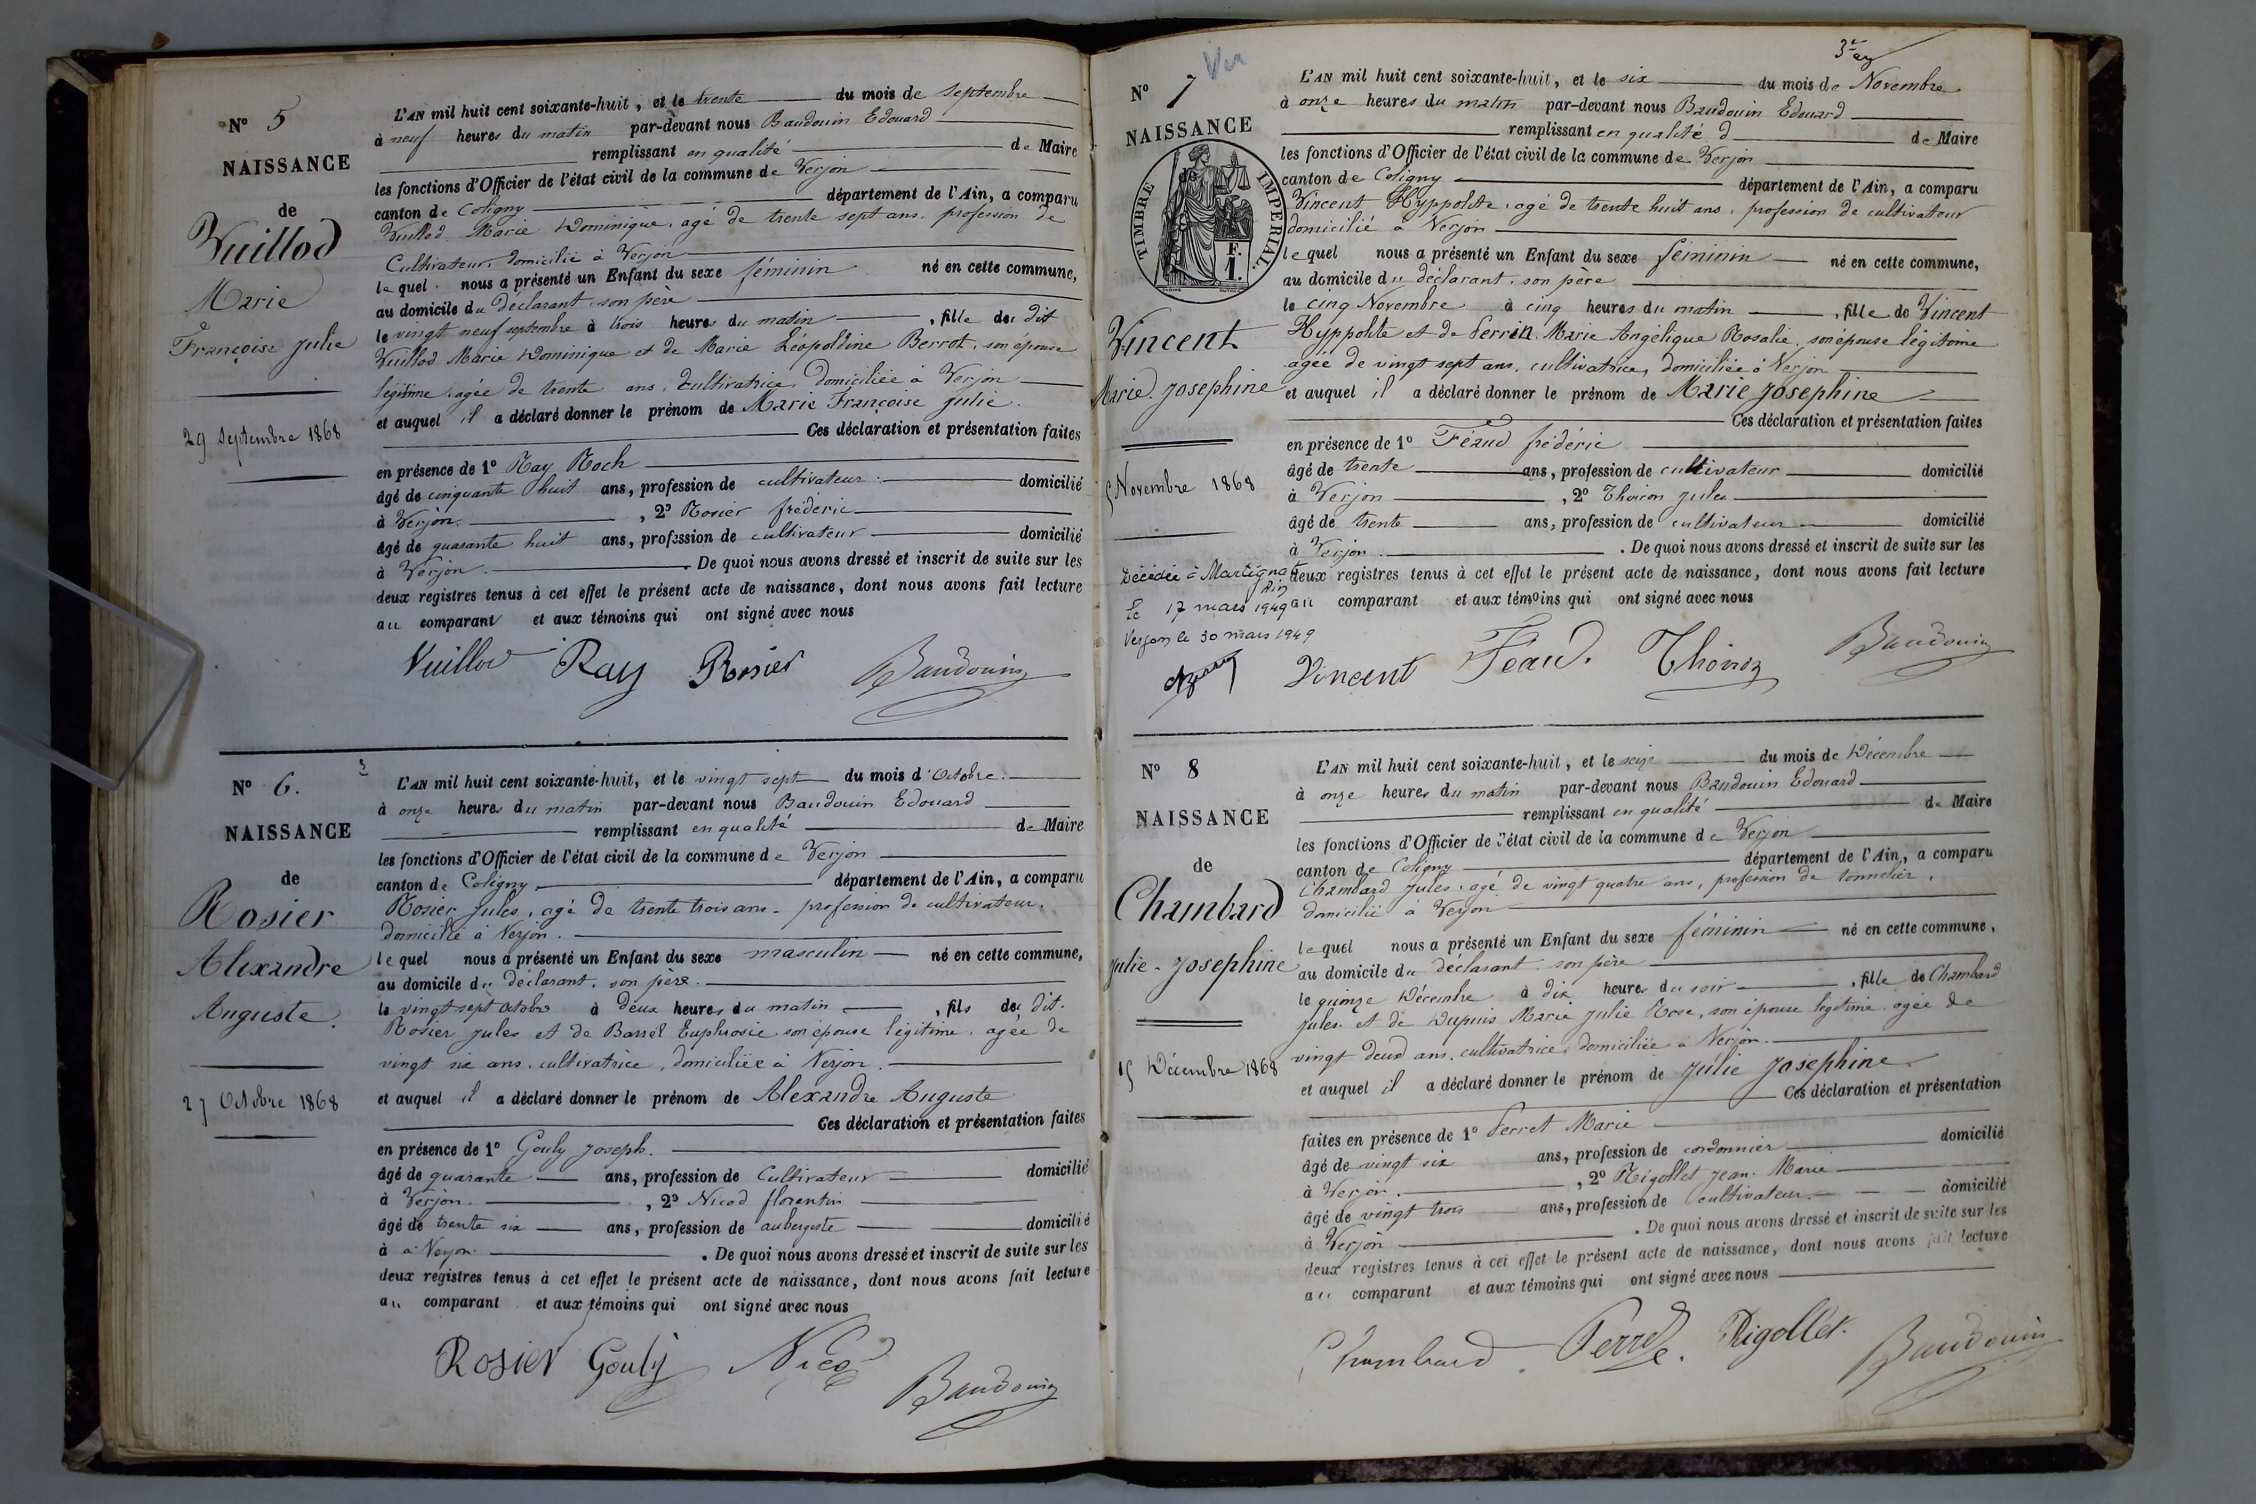 N° 5
NAISSANCE
de
Vuillod
Marie
Françoise Julie
29 Septembre 1868
L'AN mil huit cent soixante-huit, et le trente du mois de Septembre
à neuf heures du matin par-devant nous Baudouin Edouard
remplissant en qualité de Maire
les fonctions d'Officier de l'état civil de la commune de Verjon
canton de Coligny département de l'Ain, a comparu
Vuillod Marie Dominique, agé de trente sept ans, profession de
Cultivateur, domicilié à Verjon
lequel nous a présenté un Enfant du sexe féminin né en cette commune,
au domicile du déclarant, son père
le vingt neuf septembre à trois heures du matin, fille du dit
Vuillod Marie Dominique et de Marie Léopoldine Berrot, son épouse
légitime, agée de trente ans, cultivatrice, domiciliée à Verjon
et auquel il a déclaré donner le prénom de Marie Françoise Julie.
Ces déclaration et présentation faites
en présence de 1° Ray Roch
âgé de cinquante huit ans, profession de cultivateur domicilié
à Verjon, 2° Rosier frédéric
âgé de quarante huit ans, profession de cultivateur domicilié
à Verjon. De quoi nous avons dressé et inscrit de suite sur les
deux registres tenus à cet effet le présent acte de naissance, dont nous avons fait lecture
au comparant et aux témoins qui ont signé avec nous
Vuillod Ray Rosier Baudouin
N° 6.
NAISSANCE
de
Rosier
Alexandre
Auguste.
27 Octobre 1868
3
L'AN mil huit cent soixante-huit, et le vingt sept du mois d'Octobre.
à onze heures du matin par-devant nous Baudouin Edouard
remplissant en qualité de Maire
les fonctions d'Officier de l'état civil de la commune de Verjon
canton de Coligny département de l'Ain, a comparu
Rosier Jules, agé de trente trois ans, profession de cultivateur,
domicilié à Verjon.
lequel nous a présenté un Enfant du sexe masculin né en cette commune,
au domicile du déclarant, son père.
le vingt sept Octobre à deux heures du matin, fils du dit.
Rosier Jules et de Barrel Euphrosie son épouse légitime, agée de
vingt six ans, cultivatrice, domiciliée à Verjon.
et auquel il a déclaré donner le prénom de Alexandre Auguste
Ces déclaration et présentation faites
en présence de 1° Gouly Joseph.
âgé de quarante ans, profession de Cultivateur domicilié
à Verjon. , 2° Nicod florentin
âgé de trente six ans, profession de aubergiste domicilié
à à Verjon. De quoi nous avons dressé et inscrit de suite sur les
deux registres tenus à cet effet le présent acte de naissance, dont nous avons fait lecture
au comparant et aux témoins qui ont signé avec nous
Rosier Gouly Nicod
Baudouin
N° 7
NAISSANCE
de
TIMBRE IMPERIAL.
F.
1.
Vincent
Marie Josephine
5 Novembre 1868
Décédée à Martignat
Ain
le 17 mars 1949
Verjon le 30 mars 1949
L'AN mil huit cent soixante-huit, et le six du mois de Novembre
à onze heures du matin par-devant nous Baudouin Edouard
remplissant en qualité d de Maire
les fonctions d'Officier de l'état civil de la commune de Verjon
canton de Coligny département de l'Ain, a comparu
Vincent Hyppolite, agé de trente huit ans, profession de cultivateur
domicilié à Verjon
lequel nous a présenté un Enfant du sexe féminin né en cette commune,
au domicile du déclarant, son père
le cinq Novembre à cinq heures du matin, fille de Vincent
Hyppolite et de Perrin Marie Angélique Rosalie, son épouse légitime
agée de vingt sept ans, cultivatrice, domiciliée à Verjon
et auquel il a déclaré donner le prénom de Marie Josephine
Ces déclaration et présentation faites
en présence de 1° Féaud frédéric
âgé de trente ans, profession de cultivateur domicilié
à Verjon , 2° Thovion Jules
âgé de trente ans, profession de cultivateur domicilié
à Verjon. De quoi nous avons dressé et inscrit de suite sur les
deux registres tenus à cet effet le présent acte de naissance, dont nous avons fait lecture
au comparant et aux témoins qui ont signé avec nous
Vincent Feaud. Baudouin
N° 8
NAISSANCE
de
Chambard
Julie-Josephine
15 Décembre 1868
L'AN mil huit cent soixante-huit, et le seize du mois de Décembre
à onze heures du matin par-devant nous Baudouin Edouard
remplissant en qualité de Maire
les fonctions d'Officier de l'état civil de la commune de Verjon
canton de Coligny département de l'Ain, a comparu
Chambard Jules, agé de vingt quatre ans, profession de tonnelier,
domicilié à Verjon
lequel nous a présenté un Enfant du sexe féminin né en cette commune,
au domicile du déclarant son père
le quinze Décembre à dix heures du soir, fille de Chambard
Jules et de Dupuis Marie Julie Rose, son épouse légitime, agée de
vingt deux ans, cultivatrice, domiciliée à Verjon.
et auquel il a déclaré donner le prénom de Julie Josephine
Ces déclaration et présentation
faites en présence de 1° Perret Marie
âgé de vingt six ans, profession de cordonnier domicilié
à Verjon. , 2° Rigollet Jean-Marie
âgé de vingt trois ans, profession de cultivateur domicilié
à Verjon. De quoi nous avons dressé et inscrit de suite sur les
deux registres tenus à cet effet le présent acte de naissance, dont nous avons fait lecture
au comparant et aux témoins qui ont signé avec nous
Chambard. Perret. Rigollet. Baudouin